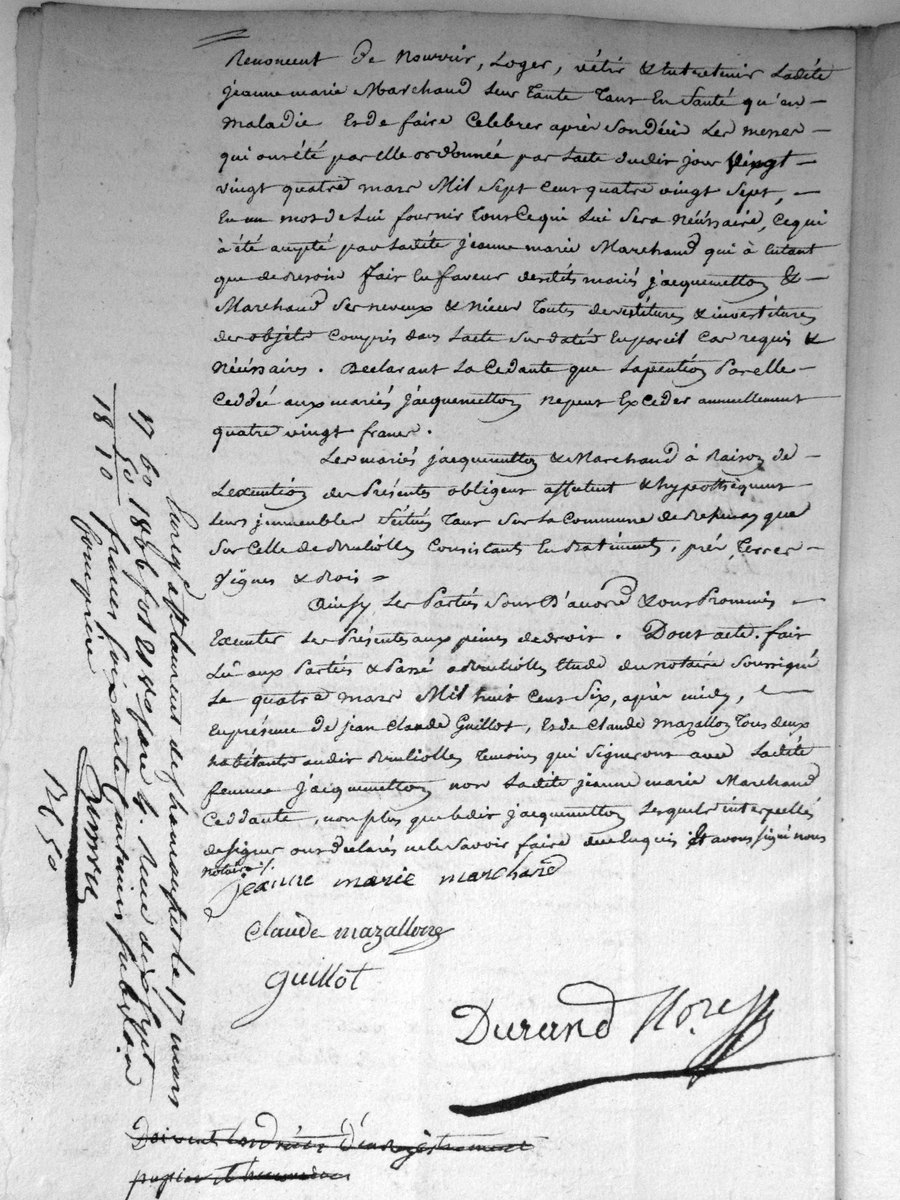 Renoncent de Nourrir, Loger, vétir & Entretenir Ladite
jeanne marie Marchand leur Tante Tant En Santé qu'en
maladie Et de faire Celebrer après Son Décü Les messes
qui ont été par elle ordonnée par Lacte dudit jour vingt
vingt quatre mars Mil Sept Cent quatre vingt Sept,
En un mot de Lui fournir Tout Ce qui Lui Sera Néússaire, Ce qui
à été aupté par Ladite jeanne marie Marchand qui à Autant
que de besoin fait En faveur desdits mariés jacquemetton &
Marchand Ses neveux & nieces Toutes devetitures & investitures
des objets Compris dans Lacte Sus datés En pareil Cas requis &
Néússaires. Declarant La Cedante que La pention Par elle
Ceddée aux mariés jacquemetton ne peut Exceder annuellement
quatre vingt francs.
Les mariés jacquemetton & Marchand à Raison de
Lexeution des Présentes obligent affectent & hypothèquent
Leurs immeubles Situés Tant Sur La Commune de que
Sur Celle de Consistant En Batiments, prés, Terres
Vignes & Bois =
Ainsy Les Parties Sont D'accord & ont Prommis
Executer Les Présentes aux peines de droit. Dont acte. fait
Lû aux Parties & Passé a Etude du notaire Soussigné
Le quatre mars Mil huit Cent Six, après midy,
En présence de jean Claude Guillot, Et de Claude Mazallon Tous deux
habitants audit Temoins qui Signeront avec Ladite
femme jacquemetton non Ladite jeanne marie Marchand
Ceddante, non plus que Ledit jacquemetton Lesquels interpellés
de signer ont declarés ne le Savoir faire de ce Enquis Et avons signé nous
notaire ./.
jeanne marie marchand
claude mazallon
guillot
Durand Nore
Doivent Les droits D'enregistrement
papier
Enreg. à St laurent de chamousset le 17 mars
1806 fol 21 Case 4. Reçu dix Sept
francs soixante Centimes Subv.on
Comprise
17 60
50
18 10
R 50